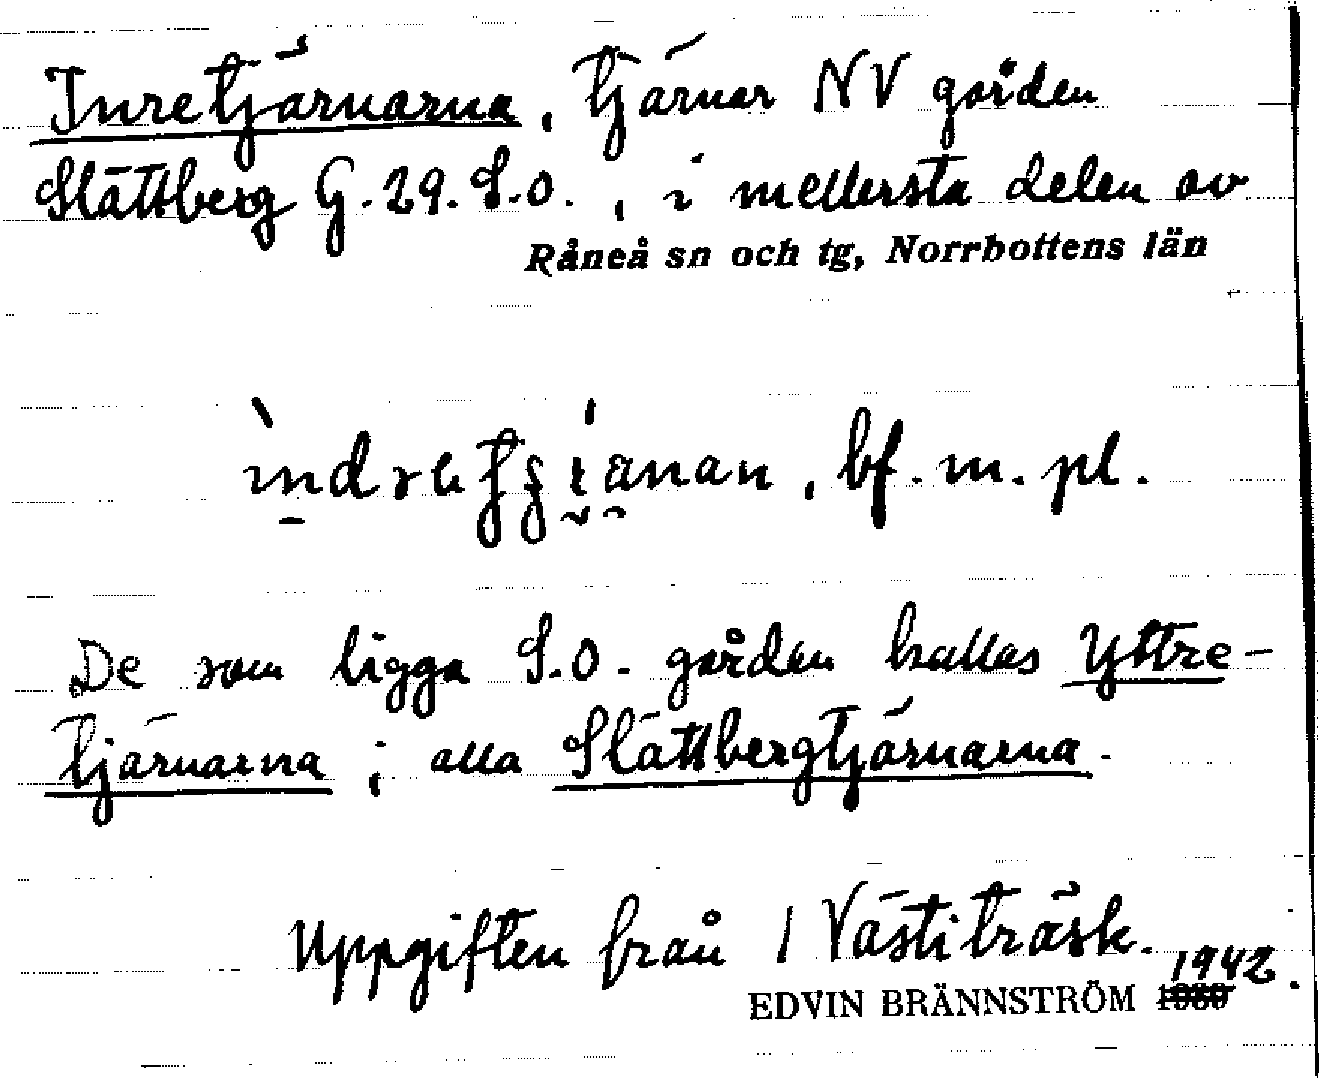 Inretjärnarna, tjärnar NV gården
Slättberg G.29.S.O., i mellersta delen av
Råneå sn och tg, Norrbottens län
bf. m. pl.
De som ligga S.O. gården kallas Yttre-
tjärnarna; alla Slättbergtjärnarna.
Uppgiften från 1 Västiträsk.
1942.
EDVIN BRÄNNSTRÖM